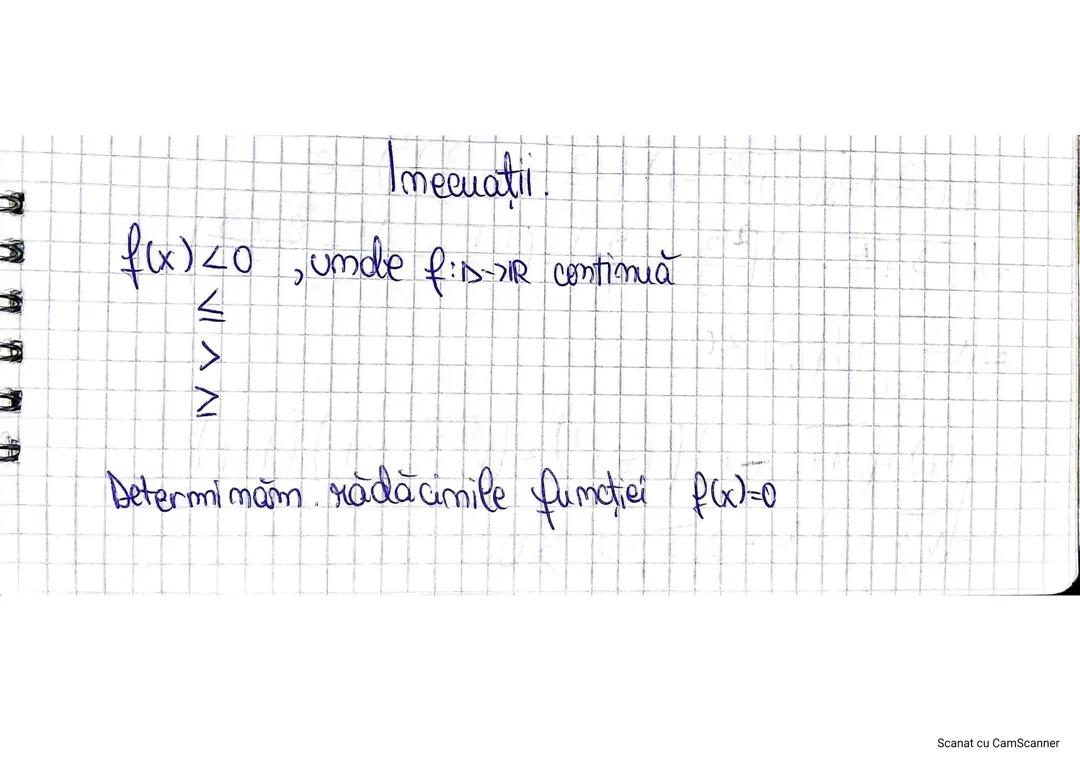 Inecuații.
f(x)<0 , unde f:D→ℝ continuă
≤
>
≥
Determinăm rădăcinile funcției f(x)=0
Scanat cu CamScanner